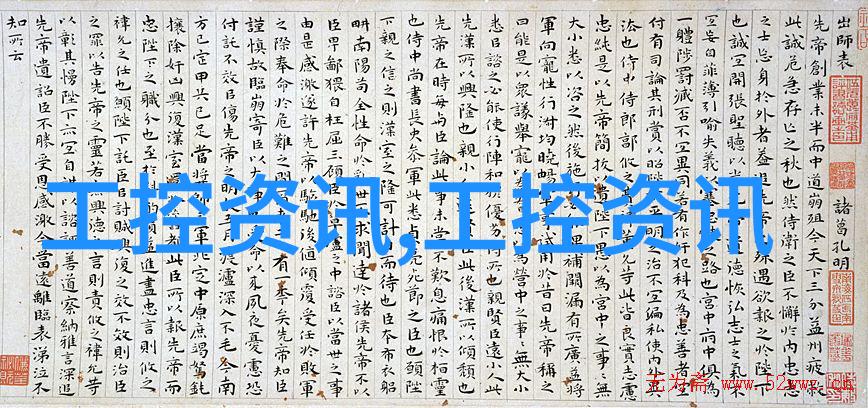 工控资讯,工控资讯
出師表
諸葛孔明
先帝創業未半而中道崩殂今天下三分益州疲敝
此誠危急存亡之秋也然侍衛之臣不懈於内忠志
之士忘身於外者蓋追先帝殊遇欲報之於陛下
也誠宜開張聖聽以光先帝遺德恢弘志士之氣不
宜妄自菲薄引喻失義以塞忠路也宮中府中俱為
一體陟罰臧否不宜異同若有作奸犯科及為忠善者宜
付有司論其刑賞以昭陛下平明之治不宜偏私使内外異
法也侍中侍郎郭攸之費董允等此皆良實志慮
忠純是以先帝簡拔以遺陛下愚以為宮中之事事無
大小悉以咨之然後施行必裨補闕漏有所廣益將
軍向寵性行淑均曉暢軍試用於昔日先帝稱之
曰能是以眾議舉寵以為營中之事事無大小
悉臣諮之必能使行陣和優劣得所也親賢臣遠小人此
先漢所以興隆也親小人遠賢臣此後漢所以傾頹也
先帝在時每與臣論此事未嘗不歎息痛恨於桓靈
也侍中尚書長史參軍此悉貞亮死節之臣也願陛
下親之信之則漢室之隆可計日而待也臣本布衣躬
畊南陽苟全性命於世求聞達於諸侯先帝不以
臣卑鄙猥自枉屈三顧臣於廬之中諮臣以當世之事
由是感激遂許先帝以驅馳後值傾覆受任於敗軍
之際奉命於危難之間有一年矣先帝知臣
謹慎故臨崩寄臣以大事受命以來夙夜憂慮恐
付託不效臣傷先帝之明五月渡瀘深入不毛今南
方已定甲兵已足當將帥軍北定中原庶竭駑鈍
攘除奸凶興復漢室舊都此臣所以報先帝而
忠陛下之職分也至於損益進盡忠言則攸之
禕允之任也願陛下託臣以討賊興復之效不效則治臣
之罪以告先帝之靈若無興德之言則責攸之禕允等
以彰其慢陛下亦宜自以諮諏善道察納雅言深追
先帝遺詔臣不勝受恩感激今當遠離臨表涕泣不
知所云
无为斋 www.52wwz.cn